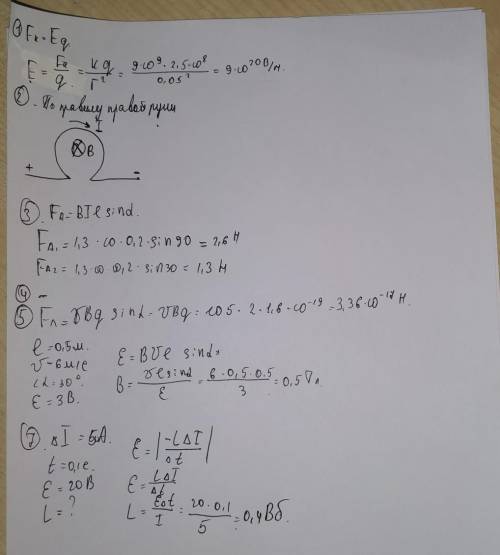 ① Fк = Eq
E = Fк/q = kq/r² = 9·10⁹·2,5·10⁸/0,05² = 9·10²⁰ В/м.
② . По правилу правой руки
I
B
+ -
③. FА = BIl sinα.
FА₁ = 1,3 · 10 · 0,2 · sin 90 = 2,6 Н
FА₂ = 1,3 · 10 · 0,2 · sin 30 = 1,3 Н
④ –
⑤ Fл = υBq sinα = υBq = 105 · 2 · 1,6 · 10⁻¹⁹ = 3,36·10⁻¹⁷ Н.
l = 0,5 м.
υ - 6 м/с ε = Bυl sinα
α = 30°. B = υl sinα/ε = 6 · 0,5 · 0,5/3 = 0,5 Тл
ε = 3 В.
⑦. ΔI = 5А.
ε = |-LΔI/Δt|
t = 0,1 с.
ε = 20 В ε = LΔI/Δt
L = ? L = εΔt/I = 20 · 0,1/5 = 0,4 Вб.